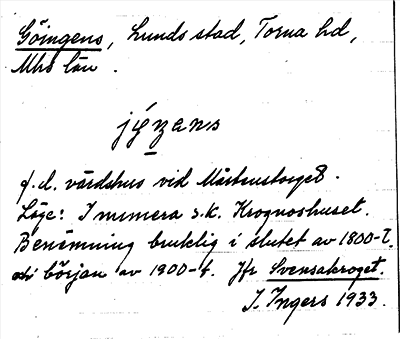 Göingens, Lunds stad, Torna hd,
Mhs län.
jöᶇans
f.d. värdshus vid Mårtenstorget.
Läge: I numera s.k. Krognoshuset.
Benämning bruklig i slutet av 1800-t.
och början av 1900-t. Jfr Svenskakroget.
I. Ingers 1933.